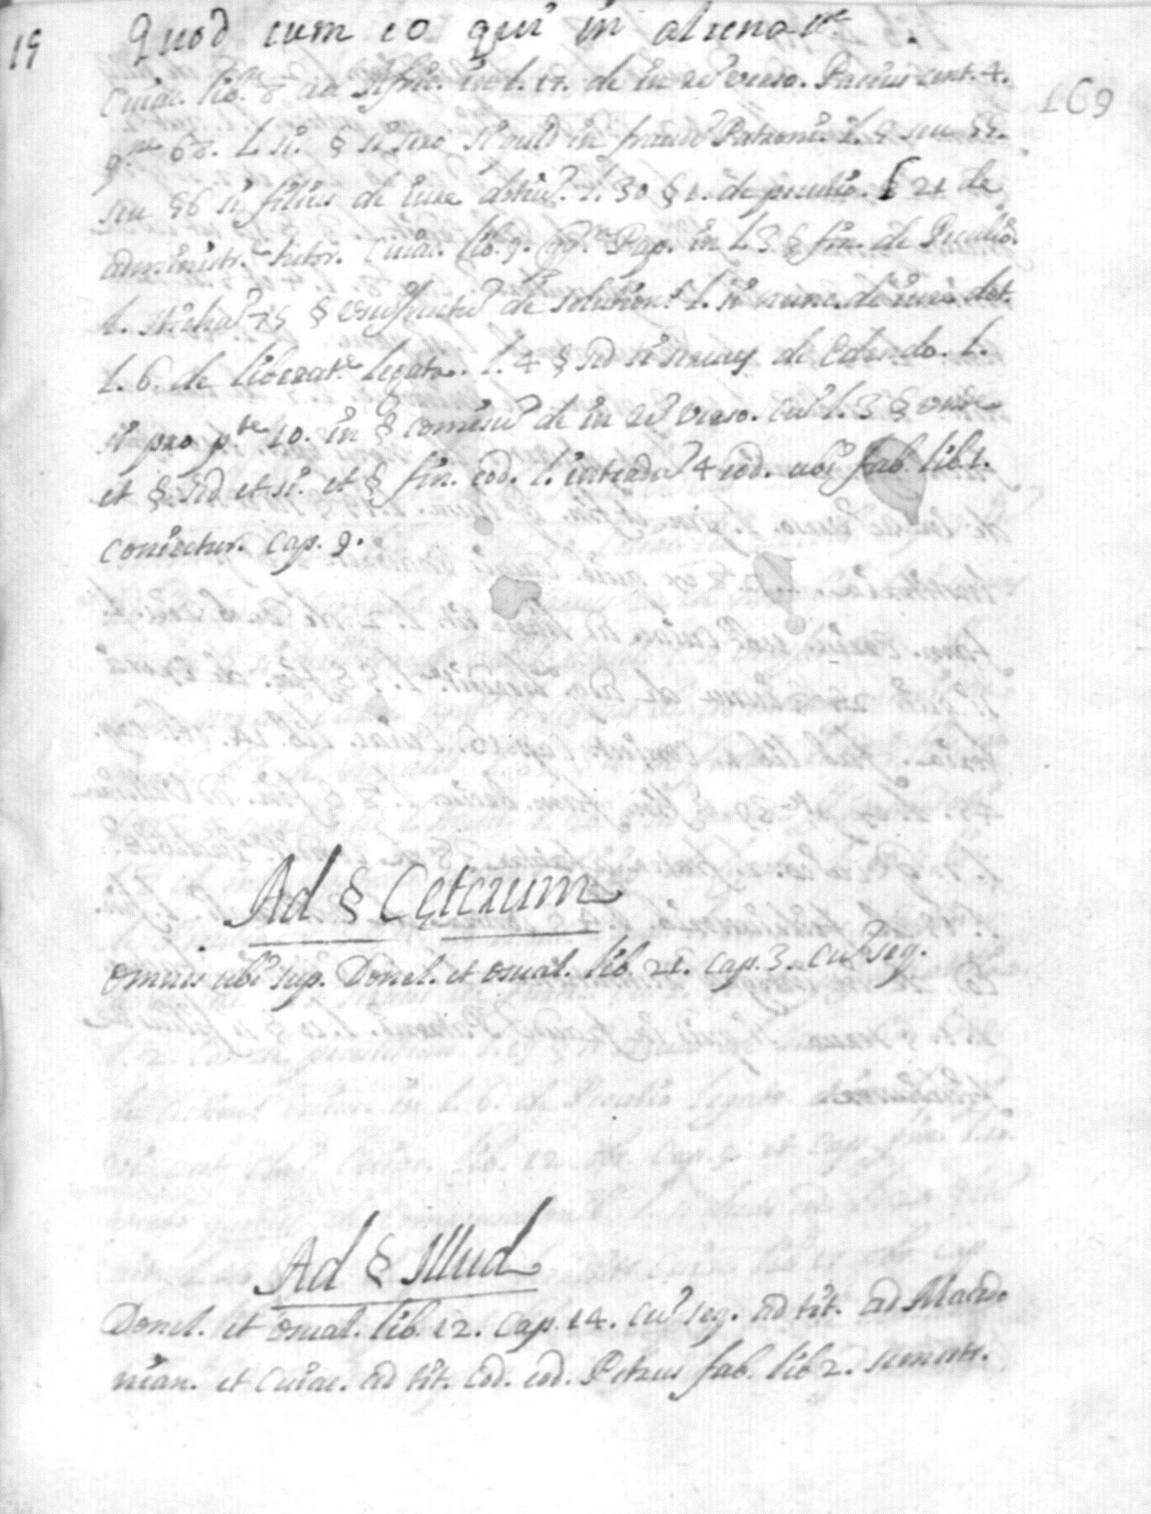 19 Quod cum eo qui in aliena p.te
169
Cuiac. lib. 8 ad Afric. in l. 17. de in rê verso. Pacius cent. 4.
q.ne 68. l. si § si seruo si quid in fraudê Patroni. l. 9 seu 55.
seu 56 si filius de iure dotiû. l. 30 § 1. de peculio. l 21 de
administr.e tutor. Cuiac. lib. 9. qq.m Pap. in l. 3 § fin. de Peculio.
l. stichû 75 § usufructû de solution. l. si nunc. de iure dot.
l. 6. de liberat.e legata. l. 4 § sed si de Edendo. l.
si pro p.te 10. in § de in rê verso. cû l. 3 § unde
et § sed et si. et § fin. eod. l. interdû 4 eod. ubi fab. lib. 1.
coniectur. cap. 9.
Ad § Ceterum
omnes ubi sup. Donel. et osual. lib. 21. cap. 3. cû seq.
Ad § Illud
Donel. et osual. lib. 12. cap. 14. cû seq. ad tit. ad Macedo
nian. et Cuiac. ad tit. Cod. eod. Petrus fab. lib 2. semestr.